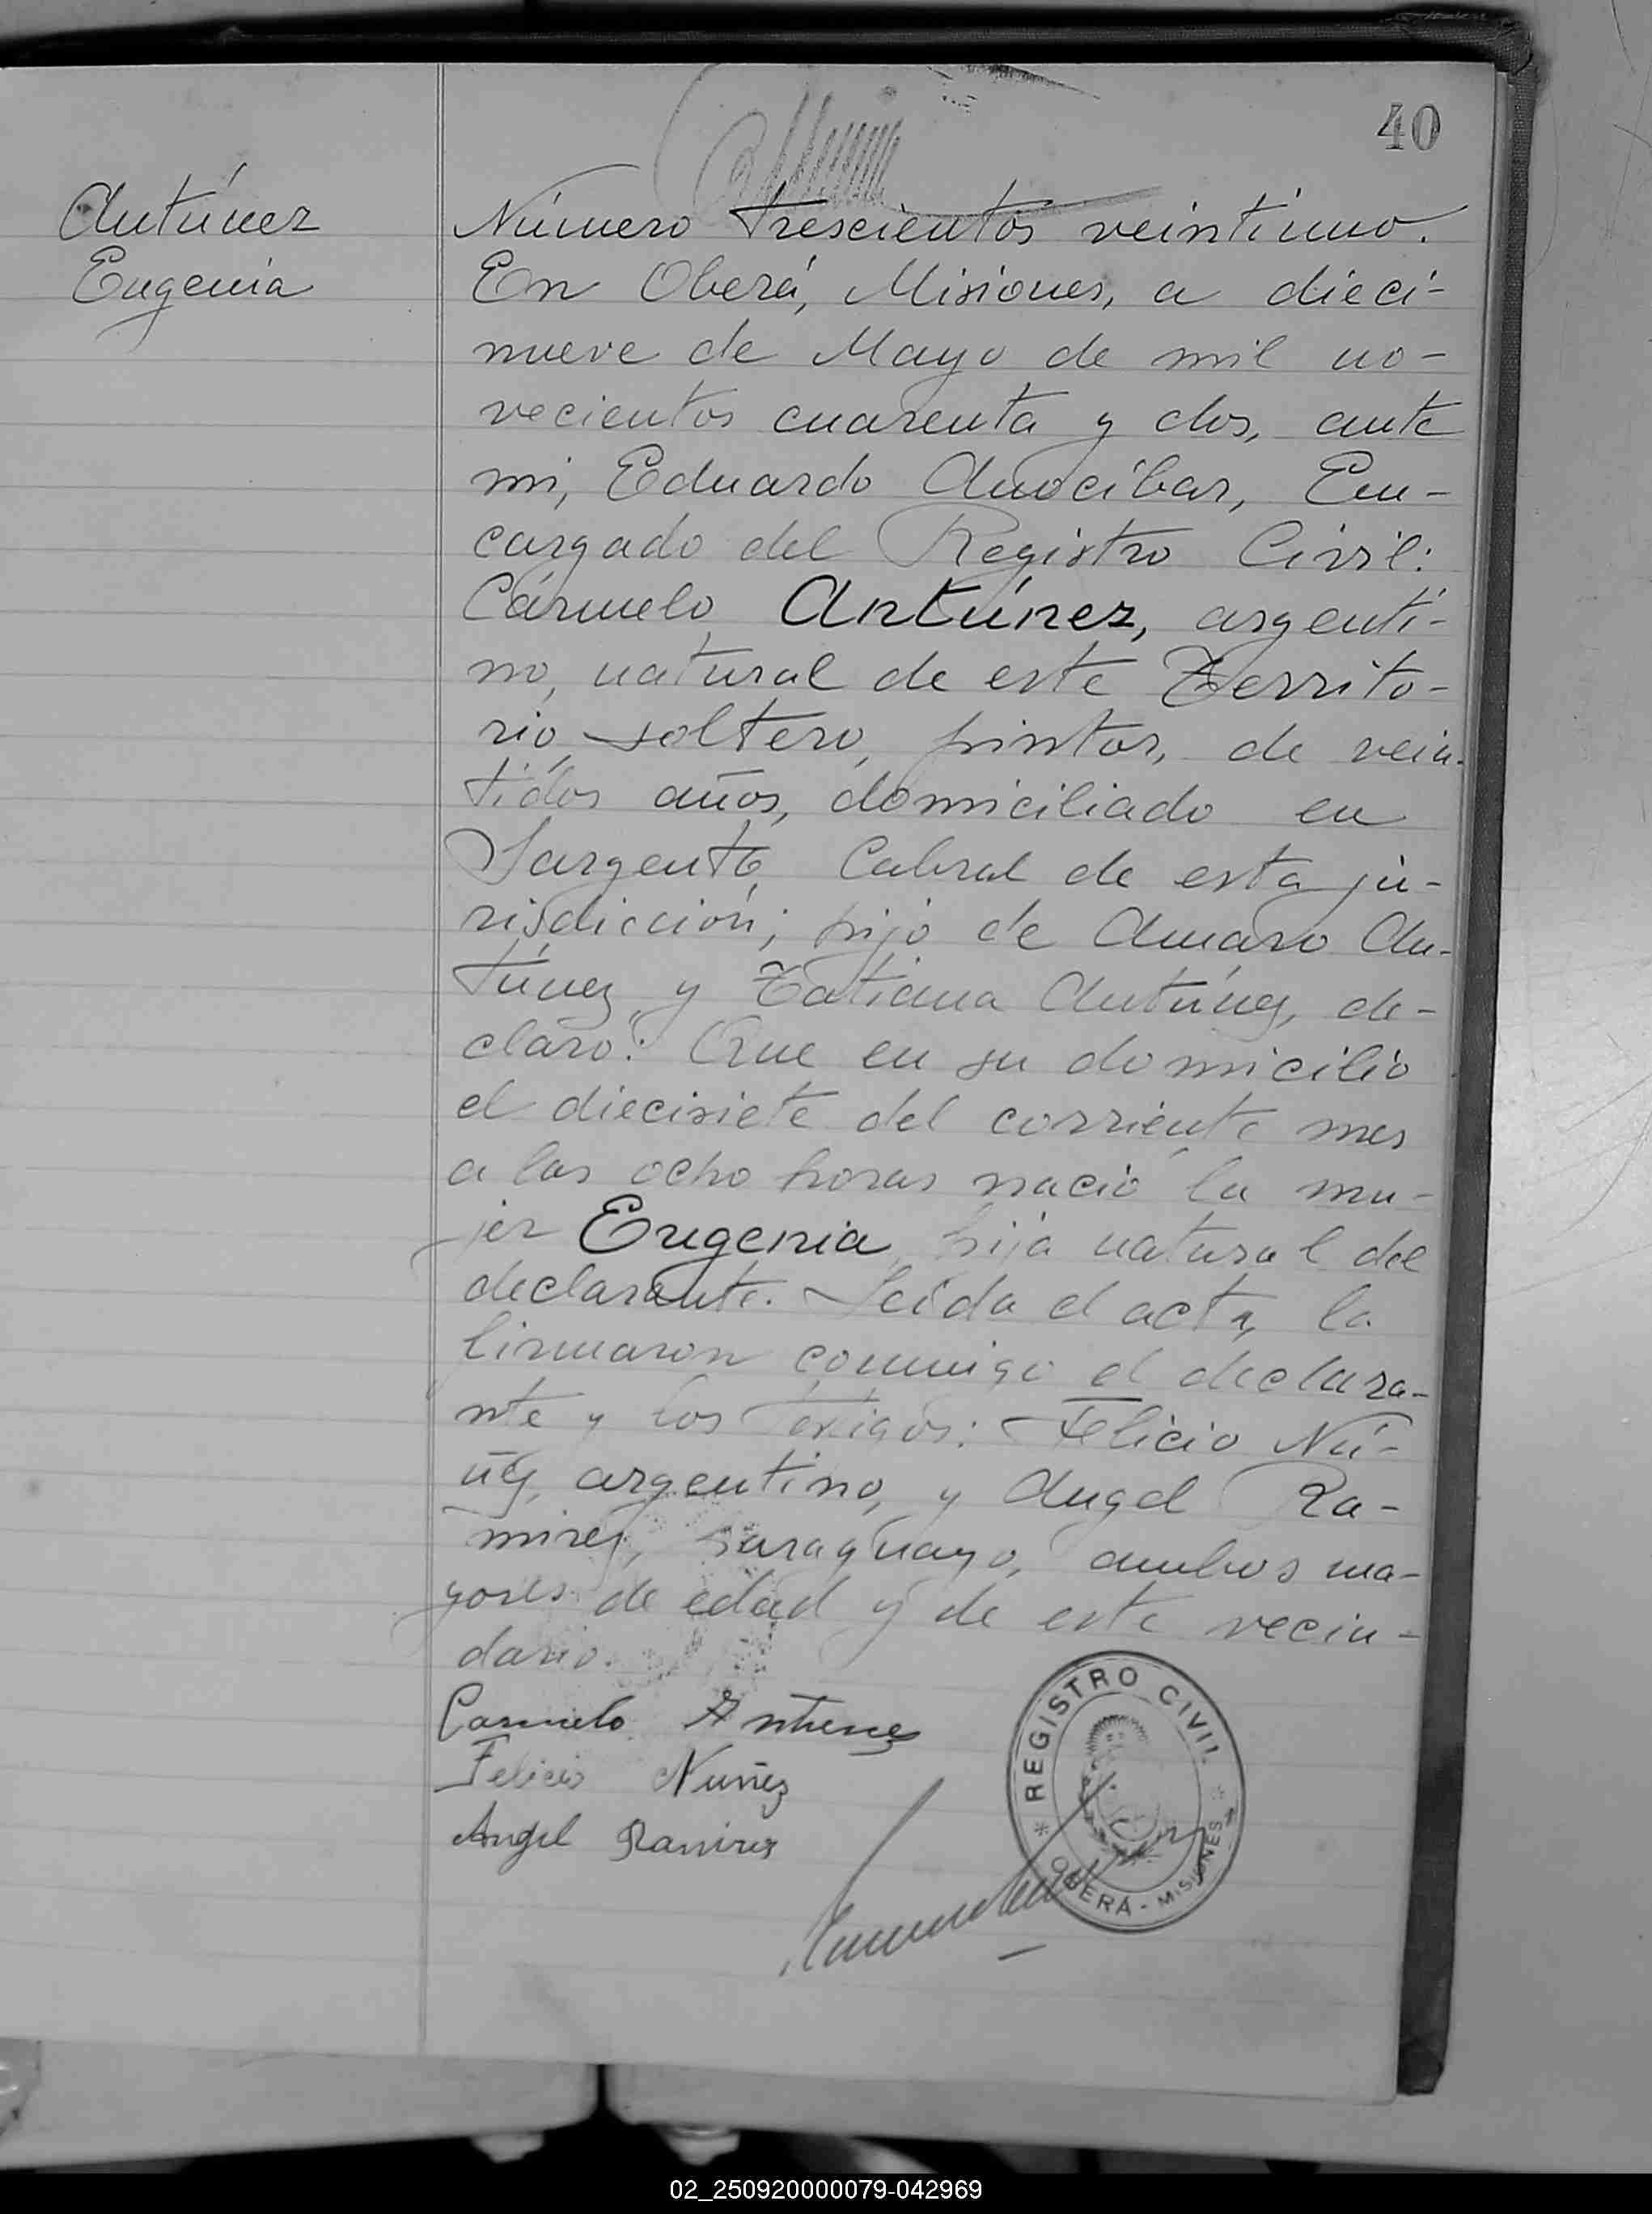 40
Antúnez
Eugenia
Número trescientos veintiuno.
En Oberá, Misiones, a dieci-
nueve de Mayo de mil no-
vecientos cuarenta y dos, ante
mi, Eduardo Anocíbar, En-
cargado del Registro Civil:
Cármelo Antúnez, argenti-
no, natural de este Territo-
rio, soltero, pintor, de vein-
tidos años, domiciliado en
Sargento Cabral de esta ju-
risdicción; hijo de Amaro An-
túnez y Tatiana Antúnez, de-
claró: Que en su domicilio
el diecisiete del corriente mes
a las ocho horas nació la mu-
jer Eugenia, hija natural del
declarante. Leída el acta, la
firmaron conmigo el declara-
nte y los testigos: Felicio Nú-
ñez, argentino, y Angel Ra-
mirez, paraguayo, ambos ma-
yores de edad y de este vecin-
dario.
Carmelo Antunez
Felicio Nuñez
Angel Ramirez
REGISTRO CIVIL
OBERÁ - MISIONES
02_250920000079-042969